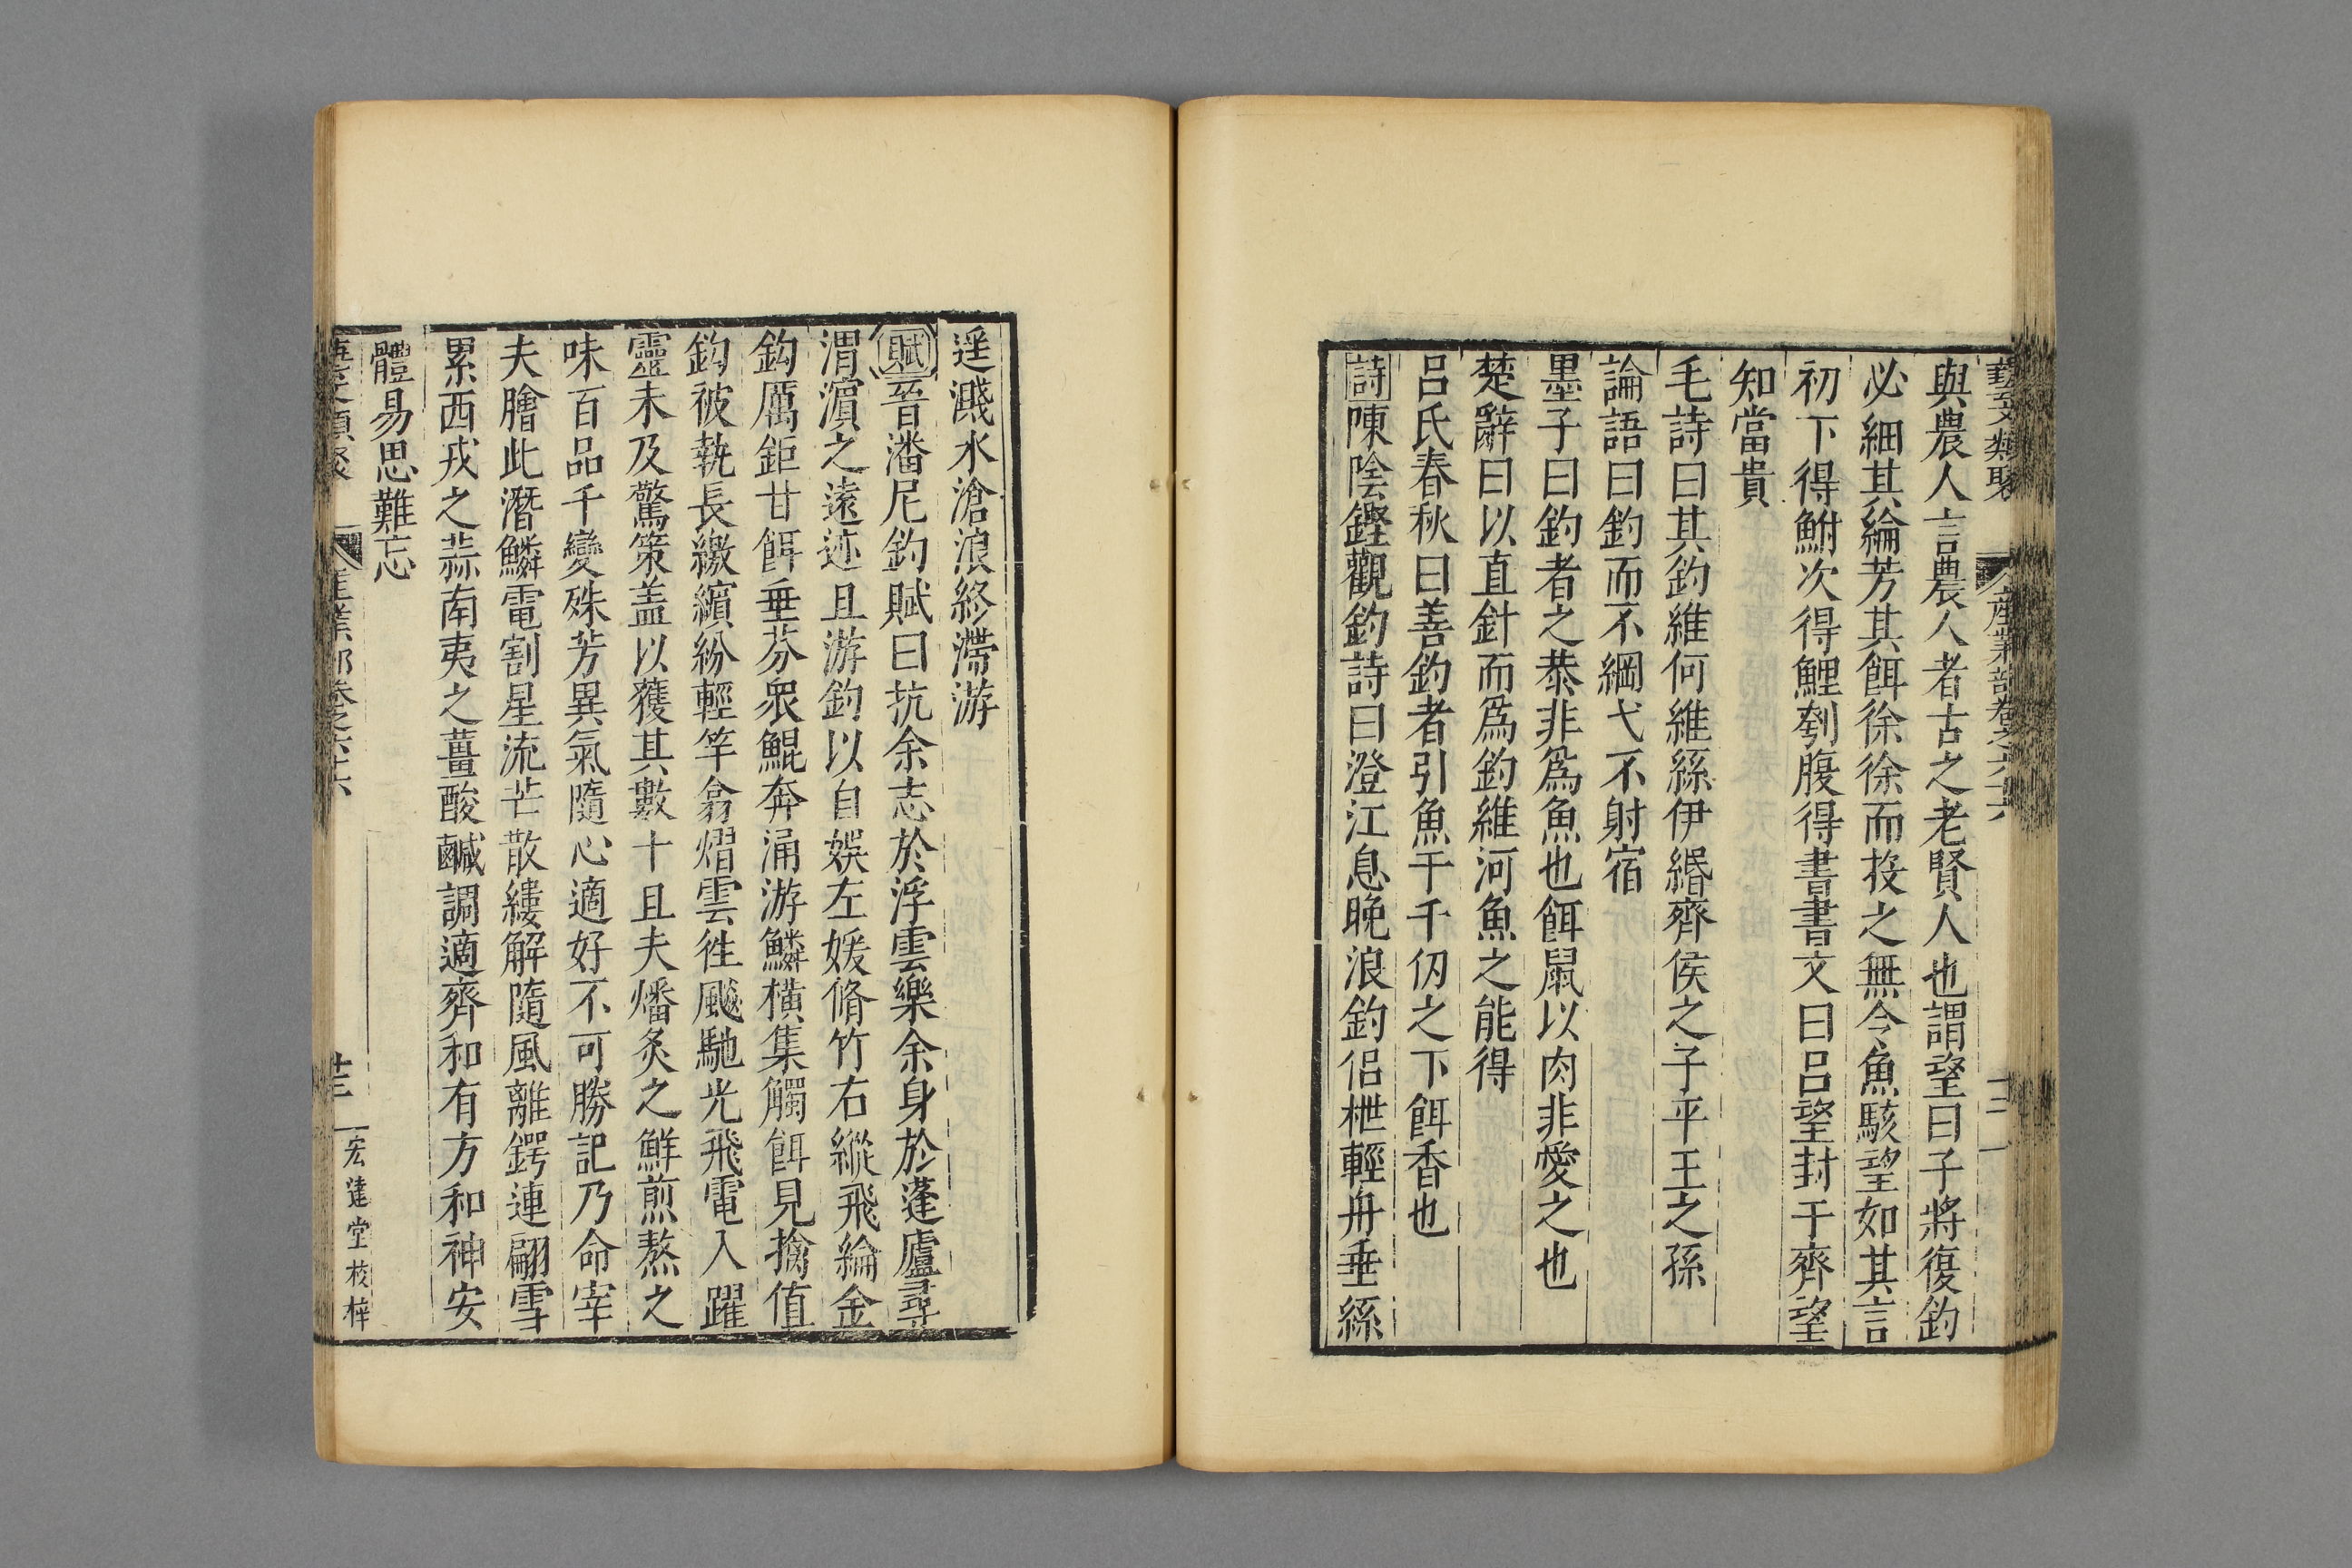 藝文類聚 產業部卷之六十六 三
與農人言農人者古之老賢人也謂望曰子將復釣
必細其綸芳其餌徐徐而投之無令魚駭望如其言
初下得鮒次得鯉刳腹得書書文曰呂望封于齊望
知當貴
毛詩曰其釣維何維絲伊緡齊侯之子平王之孫
論語曰釣而不綱弋不射宿
墨子曰釣者之恭非爲魚也餌鼠以肉非愛之也
楚辭曰以直針而爲釣維河魚之能得
呂氏春秋曰善釣者引魚于千仞之下餌香也
詩陳陰鏗觀釣詩曰澄江息晚浪釣侣枻輕舟垂絲
逕濺水滄浪終滯游
賦晉潘尼釣賦曰抗余志於浮雲樂余身於蓬廬尋
渭濵之遠迹且游釣以自娛左媛脩竹右縱飛綸金
鈎厲鉅甘餌垂芬衆鯤奔涌游鱗橫集觸餌見擒值
鈎被執長繳繽紛輕竿翕熠雲徃飈馳光飛電入躍
靈未及驚策盖以獲其數十且夫燔炙之鮮煎熬之
味百品千變殊芳異氣隨心適好不可勝記乃命宰
夫膾此潛鱗電割星流芒散縷解隨風離鍔連翩雪
累西戎之蒜南夷之薑酸鹹調適齊和有方和神安
體易思難忘
藝文類聚 產業部卷之六十六 宏達堂校梓